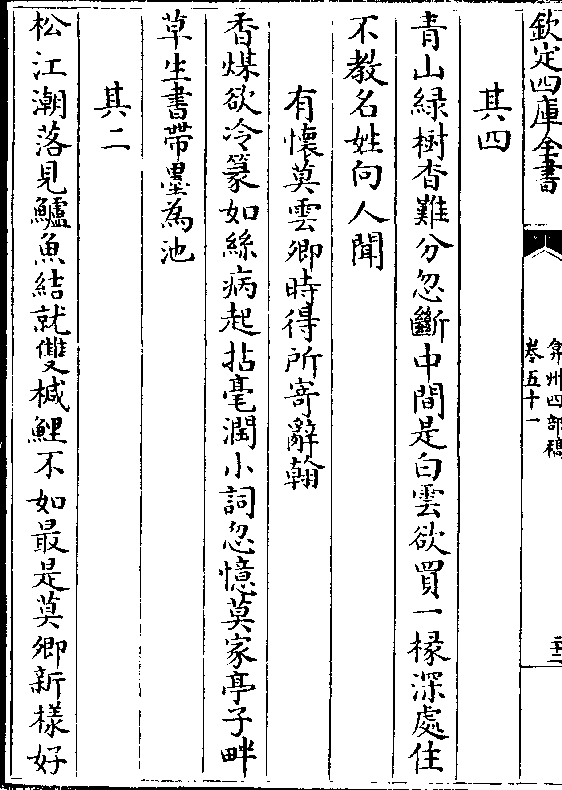 欽定四庫全書
弇州四部稿
卷五十一
其四
青山緑樹杳難分忽斷中間是白雲欲買一椽深處住
不教名姓向人聞
有懷莫雲卿時得所寄辭翰
香煤欲冷篆如絲病起拈毫潤小詞忽憶莫家亭子畔
草生書帶墨為池
其二
松江潮落見鱸魚結就雙椷鯉不如最是莫卿新様好